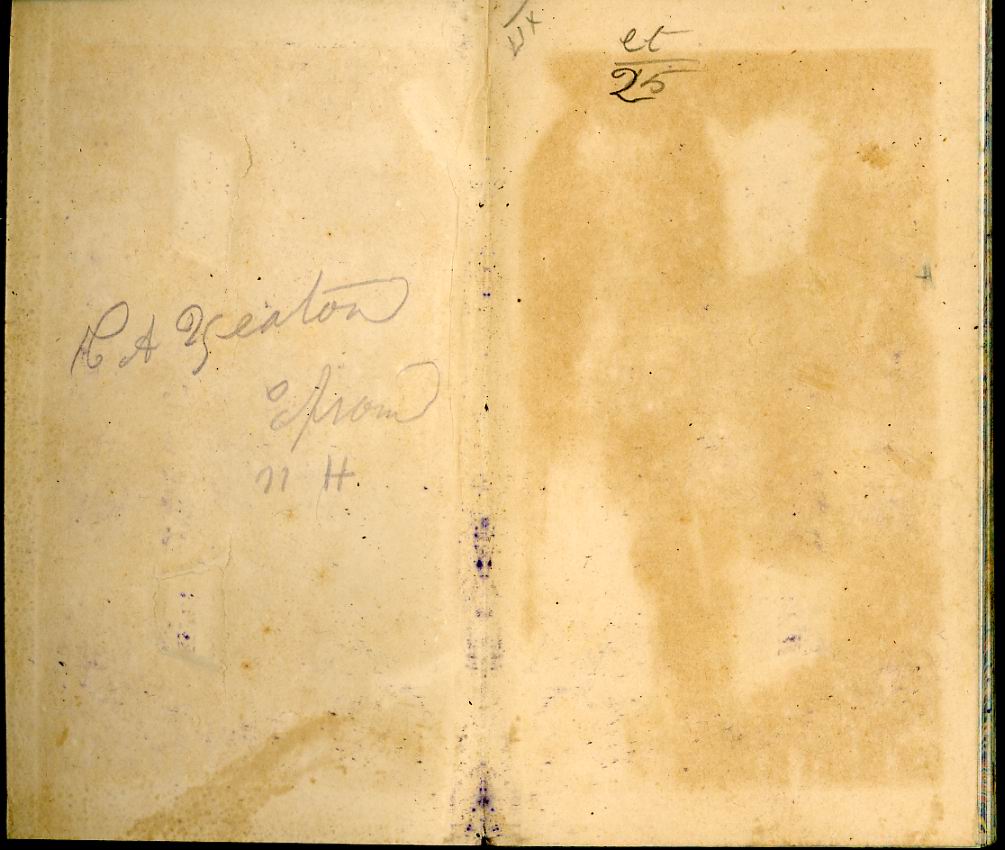 R A Yeaton
Epsom
N H.
et
25